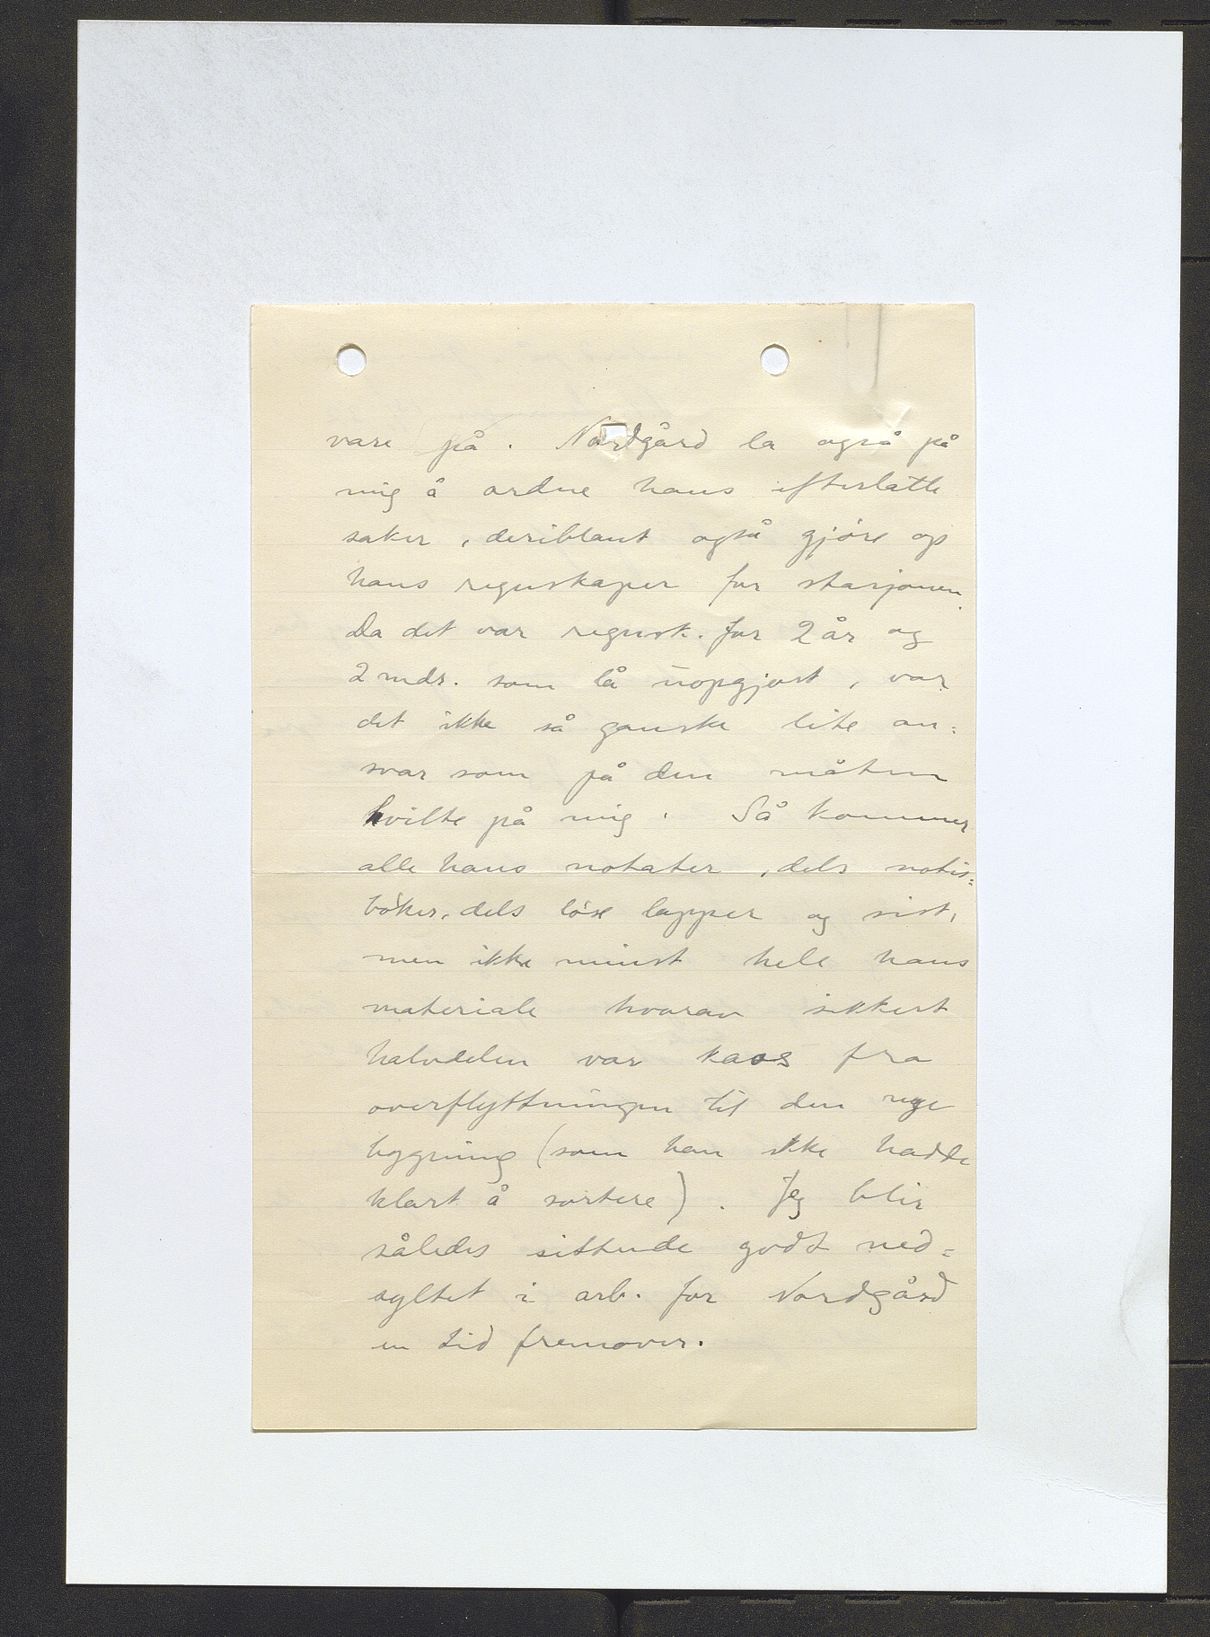 vare på. Nordgård la også på
mig å ordne hans efterlatte
saker, deriblant også gjöre op
hans regnskaper for stasjonen.
Da det var regnsk. for 2 år og
2 mdr. som lå uopgjort, var
det ikke så ganske lite an=
svar som på den måten
hvilte på mig. Så kommer
alle hans notater, dels notis=
böker, dels löse lapper og sist,
men ikke minst hele hans
materiale hvorav sikkert
halvdelen var kaos fra
overflyttningen til den nye
bygning (som han ikke hadde
klart å sortere). Jeg blir
således sittende godt ned=
syltet i arb. for Nordgård
en tid fremover.